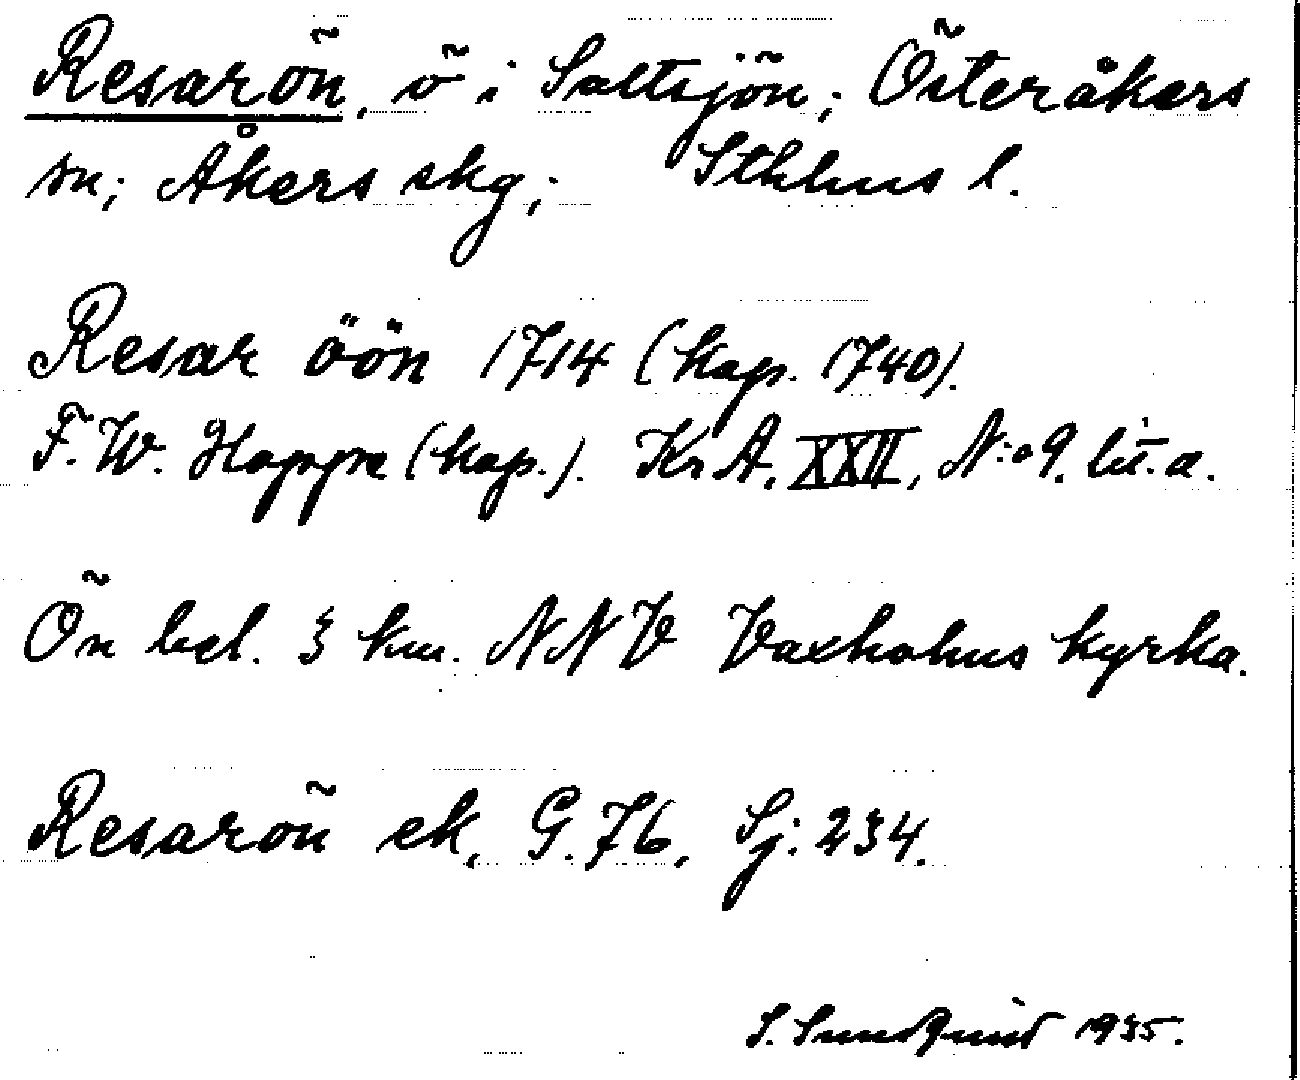 Resarön, ö i Saltsjön; Österåkers
sn; Åkers skg; Sthlms l.
Resar öön 1714 (kop. 1740).
F. W. Hoppe (kop.). KrA. XXII, N:o 9. lit. a.
Ön bel. 3 km. NNV Vaxholms kyrka.
Resarön ek, G. 76, Sj: 234.
S. Sundquist 1935.